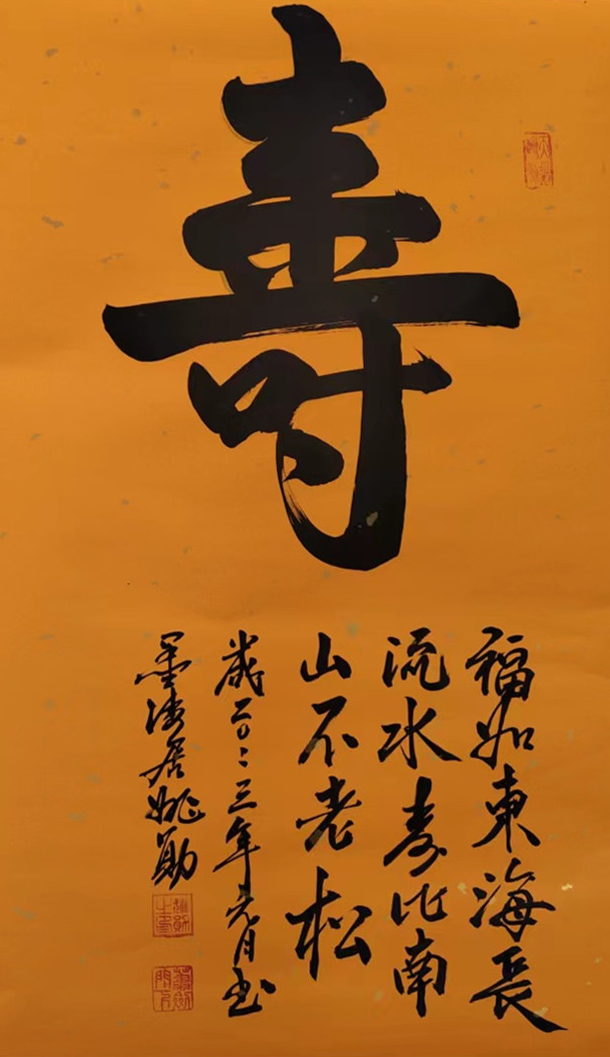 壽
福如東海長
流水壽比南
山不老松
歲二〇二三年元月書
墨濤居姚勛